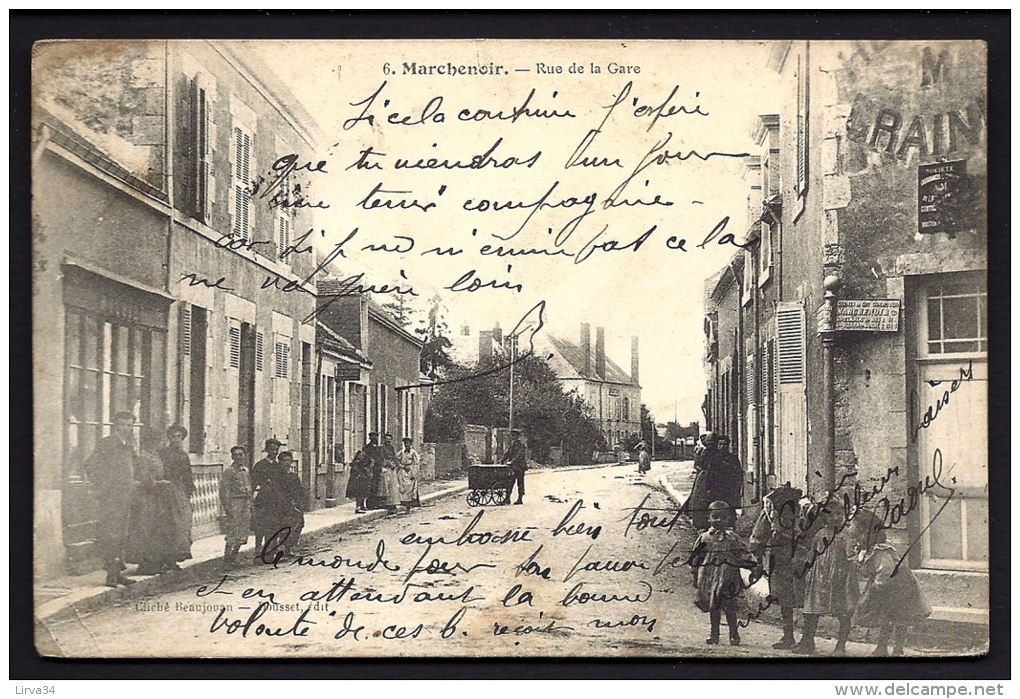 6. Marchenoir. — Rue de la Gare
Si cela continu j'espère
que tu viendras un jour
me tenir compagnie —
car si j' ne m'ennui pas cela
ne va guèri loin
M
RAIN
SOCIÉTÉ
MARCHENOIR
embrasse bien tout
le monde pour
et en attendant la bonne
volonté de ces b. reçoit mon
meilleur
baiser
Raoul.
Cliché Beaujouan — Rousset, édit
Lirva34
http://www.delcampe.net